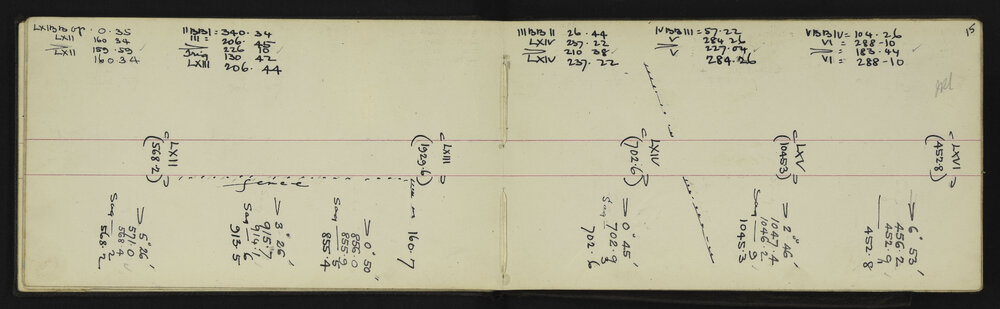 LXIIBB Gp. 0.35
LXII 160 34
LXII 159.59
160.34
IIBBI = 340.34
III =
226
130 42
LXIII 206. 44
IIIBBII 26.44
LXIV 237.22
210 38
LXIV 237.22
IVBBIII = 57.22
V 284 26
227.04
V 284.26
VBBIV = 104.26
VI = 288-10
= 183.44
VI = 288-10
15
LXII
(568.2)
LXIII
(1929.6)
LXIV
(702.6)
LXV
(1045.3)
LXVI
(452.8)
fence
160.7
5° 26'
571.0
568.4
Sag 2
568.2
3° 26'
915.7
914.1
Sag 6
913.5
0° 50'
856.0
855.9
Sag 5
855.4
0° 45'
702.9
Sag 3
702.6
2° 46'
1047.4
1046.2
Sag 9
1045.3
6° 53'
456.2
452.9
1
452.8